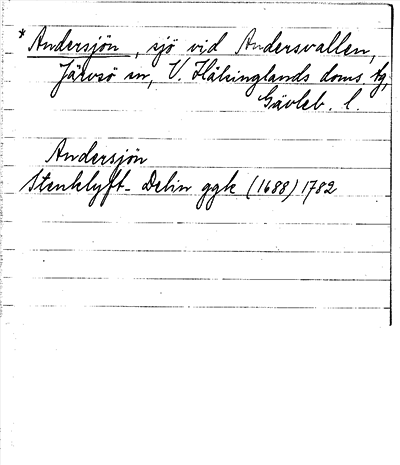 * Andersjön, sjö vid Andersvallen,
Järvsö sn, V. Hälsinglands doms. tg,
Gävleb. l.
Andersjön
Stenklyft-Delin ggk (1688) 1782